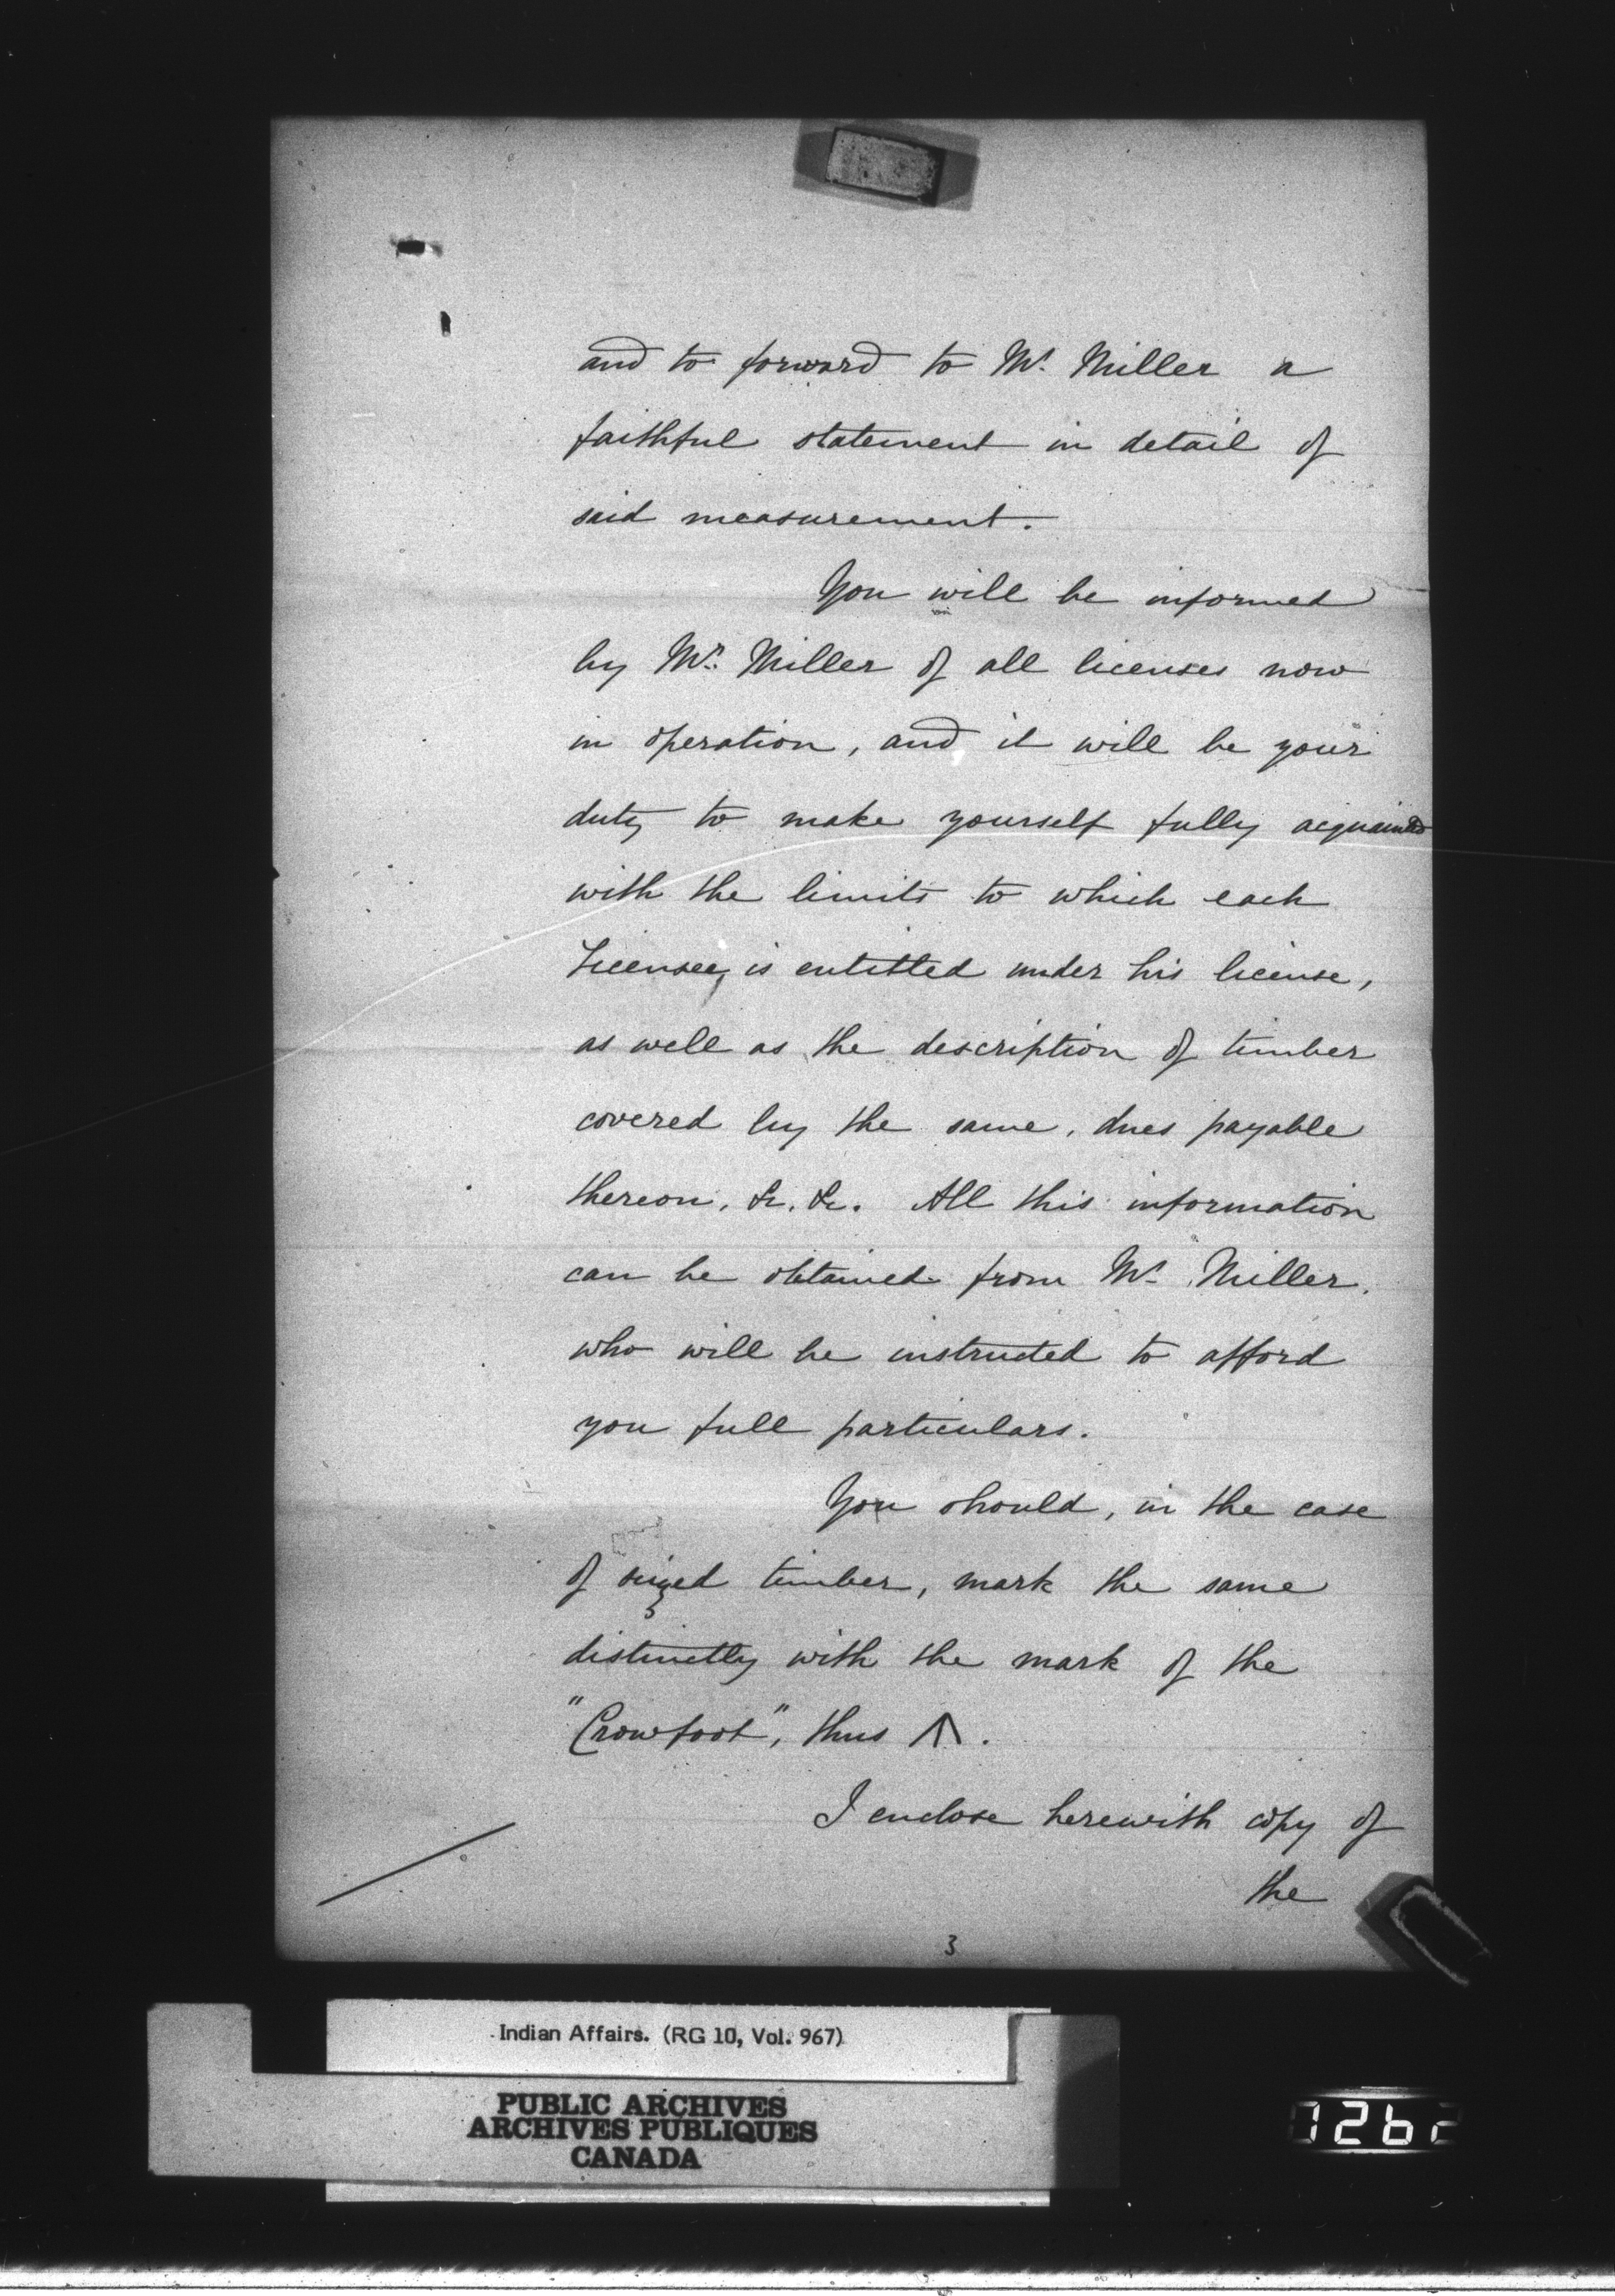 and to forward to Mr. Miller a
faithful statement in detail of
said measurement.
You will be informed
by Mr. Miller of all licenses now
in operation, and it will be your
duty to make yourself fully acquainted
with the limits to which each
Licensee, is entitled under his license,
as well as the description of timber
covered by the same, dues payable
thereon, &c. &c. All this information
can be obtained from Mr. Miller,
who will be instructed to afford
you full particulars.
You should, in the case
of seized timber, mark the same
distinctly with the mark of the
"Crowfoot", thus /|\.
I enclose herewith copy of
the
3
Indian Affairs. (RG 10, Vol. 967)
PUBLIC ARCHIVES
ARCHIVES PUBLIQUES
CANADA